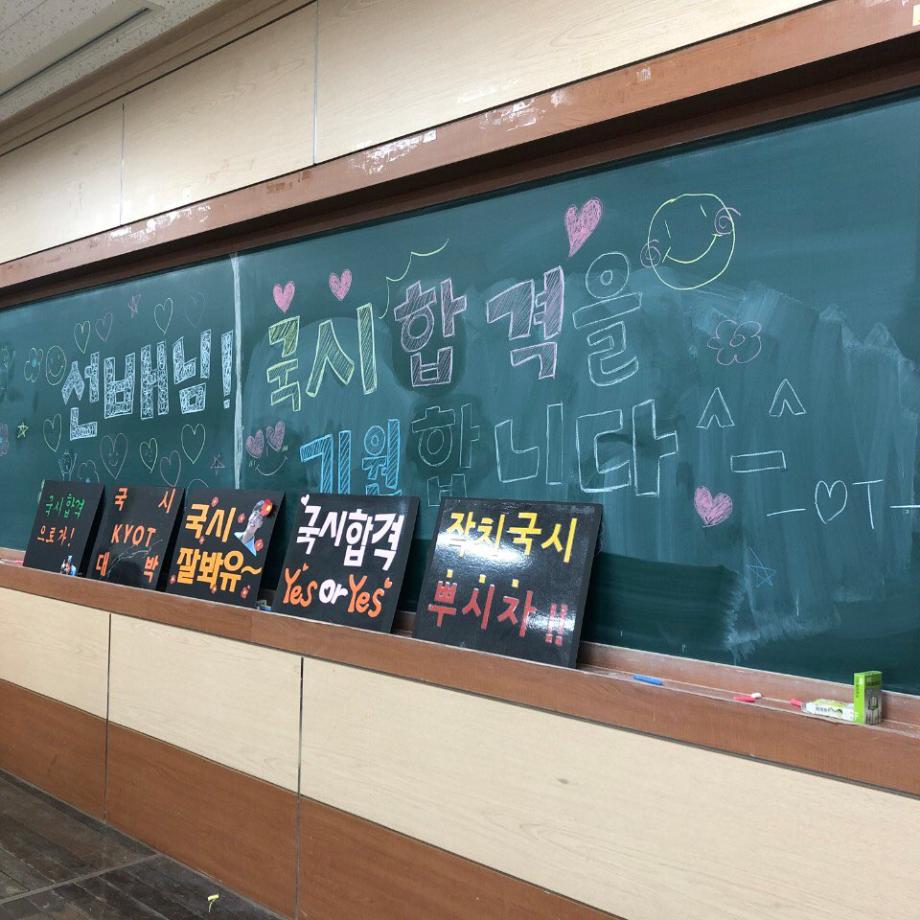 선배님! 국시 합격을
기원합니다
-♡OT-
국시합격
으로가!
국시
KYOT
대박
국시
잘봐유~
국시합격
Yes or Yes
잔치국시
뿌시자!!